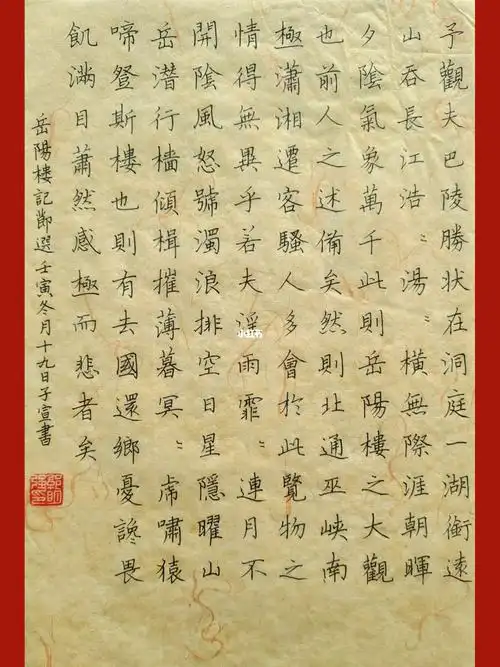 予觀夫巴陵勝状在洞庭一湖銜遠
山吞長江浩〻湯〻橫無際涯朝暉
夕陰氣象萬千此則岳陽樓之大觀
也前人之述備矣然則北通巫峡南
極瀟湘遷客騷人多會於此覽物之
情得無異乎若夫淫雨霏〻連月不
開陰風怒號濁浪排空日星隱曜山
岳潛行檣傾楫摧薄暮冥〻虎嘯猿
啼登斯樓也則有去國還鄉憂讒畏
飢滿目蕭然感極而悲者矣
岳陽樓記節選壬寅冬月十九日子宣書
小红书